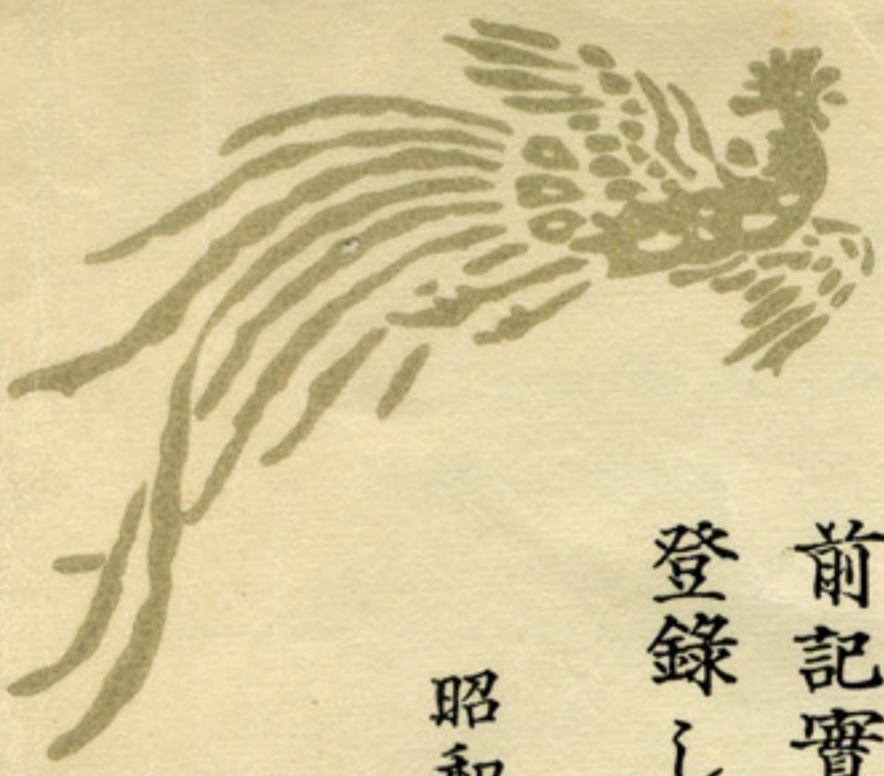 前記實
登錄し
昭和